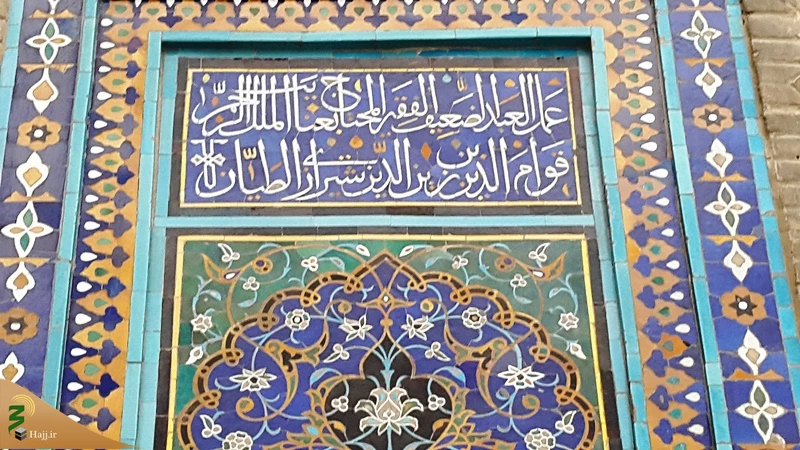 عمل العبد الضعیف الفقیر المحتاج بعنایة الملک الرحمن
قوام الدین بن زین الدین شیرازی الطیان
Hajj.ir